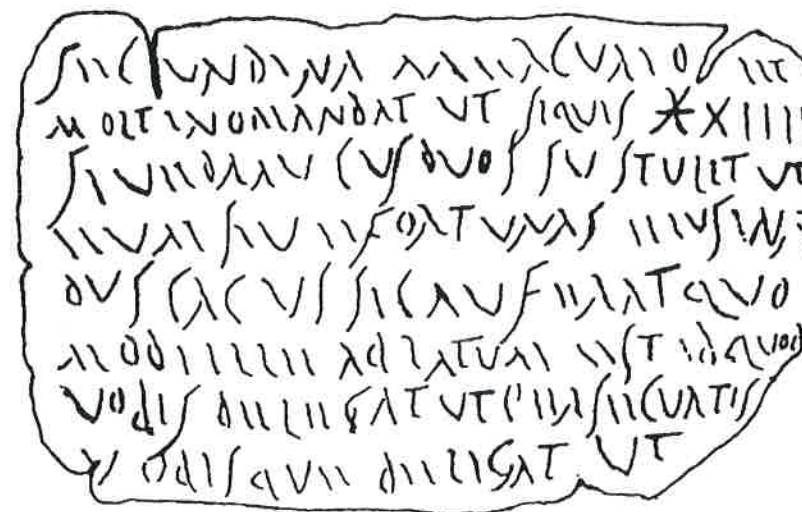 SECVNDINA MERCVRIO ET
MOLTINO MANDAT VT SIQVIS * XIIII
SIVE DRAVCVS DVOS SVSTVLIT VT
EVM SIVE FORTVNAS EIVS INF
DVS CACVS SIC AVFERAT QVO
MODI ILLE ADLATVM EST ID QVOD
VOBIS DELEGAT VT PERSECVATIS
VOBISQVE DELIGAT VT